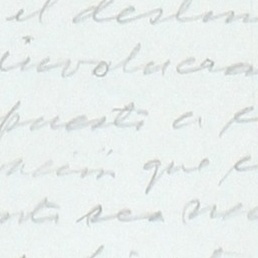 el deslin
involucra
puesta a e
ación que e
nte sea nec